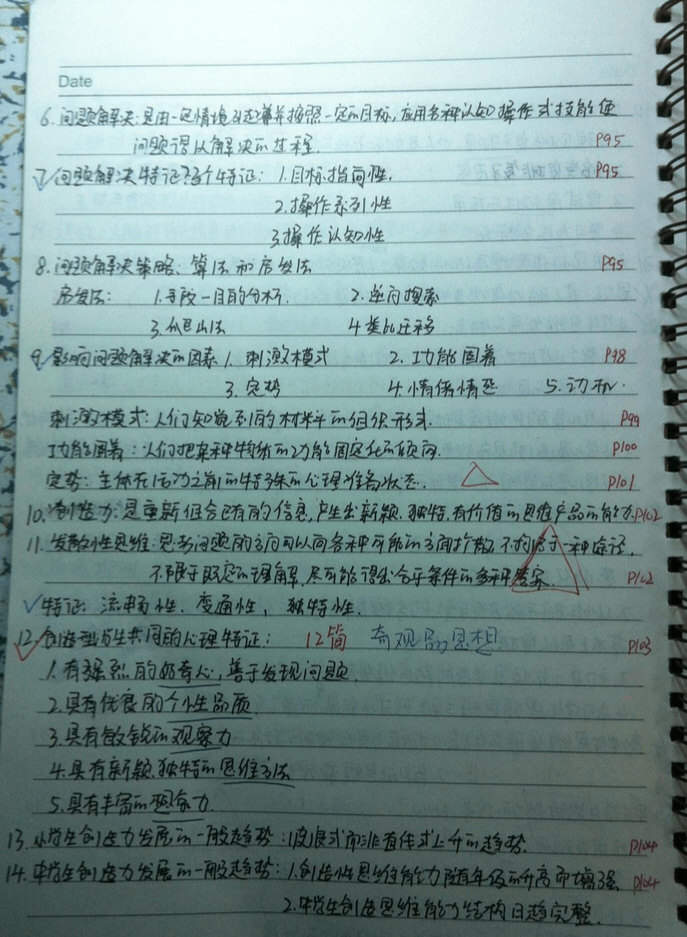 Date
6.问题解决:是由一定情境引起并按照一定的目标,应用各种认知操作或技能使
问题得以解决的过程. P95
7.问题解决特征?3个特征: 1.目标指向性. P95
2.操作系列性
3.操作认知性
8.问题解决策略:算法和启发法 P95
启发法: 1.手段—目的分析. 2.逆向搜索
3.爬山法 4类比迁移
9.影响问题解决的因素 1.刺激模式 2.功能固着 P98
3.定势 4.情绪情感 5.动机.
刺激模式:人们知觉到的材料的组织形式. P99
功能固着:人们把某种物体的功能固定化的倾向. P100
定势:主体在活动之前的特殊的心理准备状态. P101
10.创造力:是重新组合已有的信息,产生出新颖.独特,有价值的思维产品的能力.P102
11.发散性思维:思考问题的方向可以向各种可能的方面扩散,不拘泥于一种途径,
不限于既定的理解,尽可能得出合乎条件的多种答案. P102
√特征:流畅性.变通性,独特性.
12.创造型学生共同的心理特征: 12简 奇观个思想 P103
1.有强烈的好奇心,善于发现问题.
2.具有优良的个性品质.
3.具有敏锐的观察力
4.具有新颖.独特的思维方法
5.具有丰富的想象力.
13.小学生创造力发展的一般趋势:波浪式而非直线式上升的趋势. P104
14.中学生创造力发展的一般趋势:1.创造性思维能力随年级的升高而增强 P104
2.中学生创造思维能力结构日趋完整.